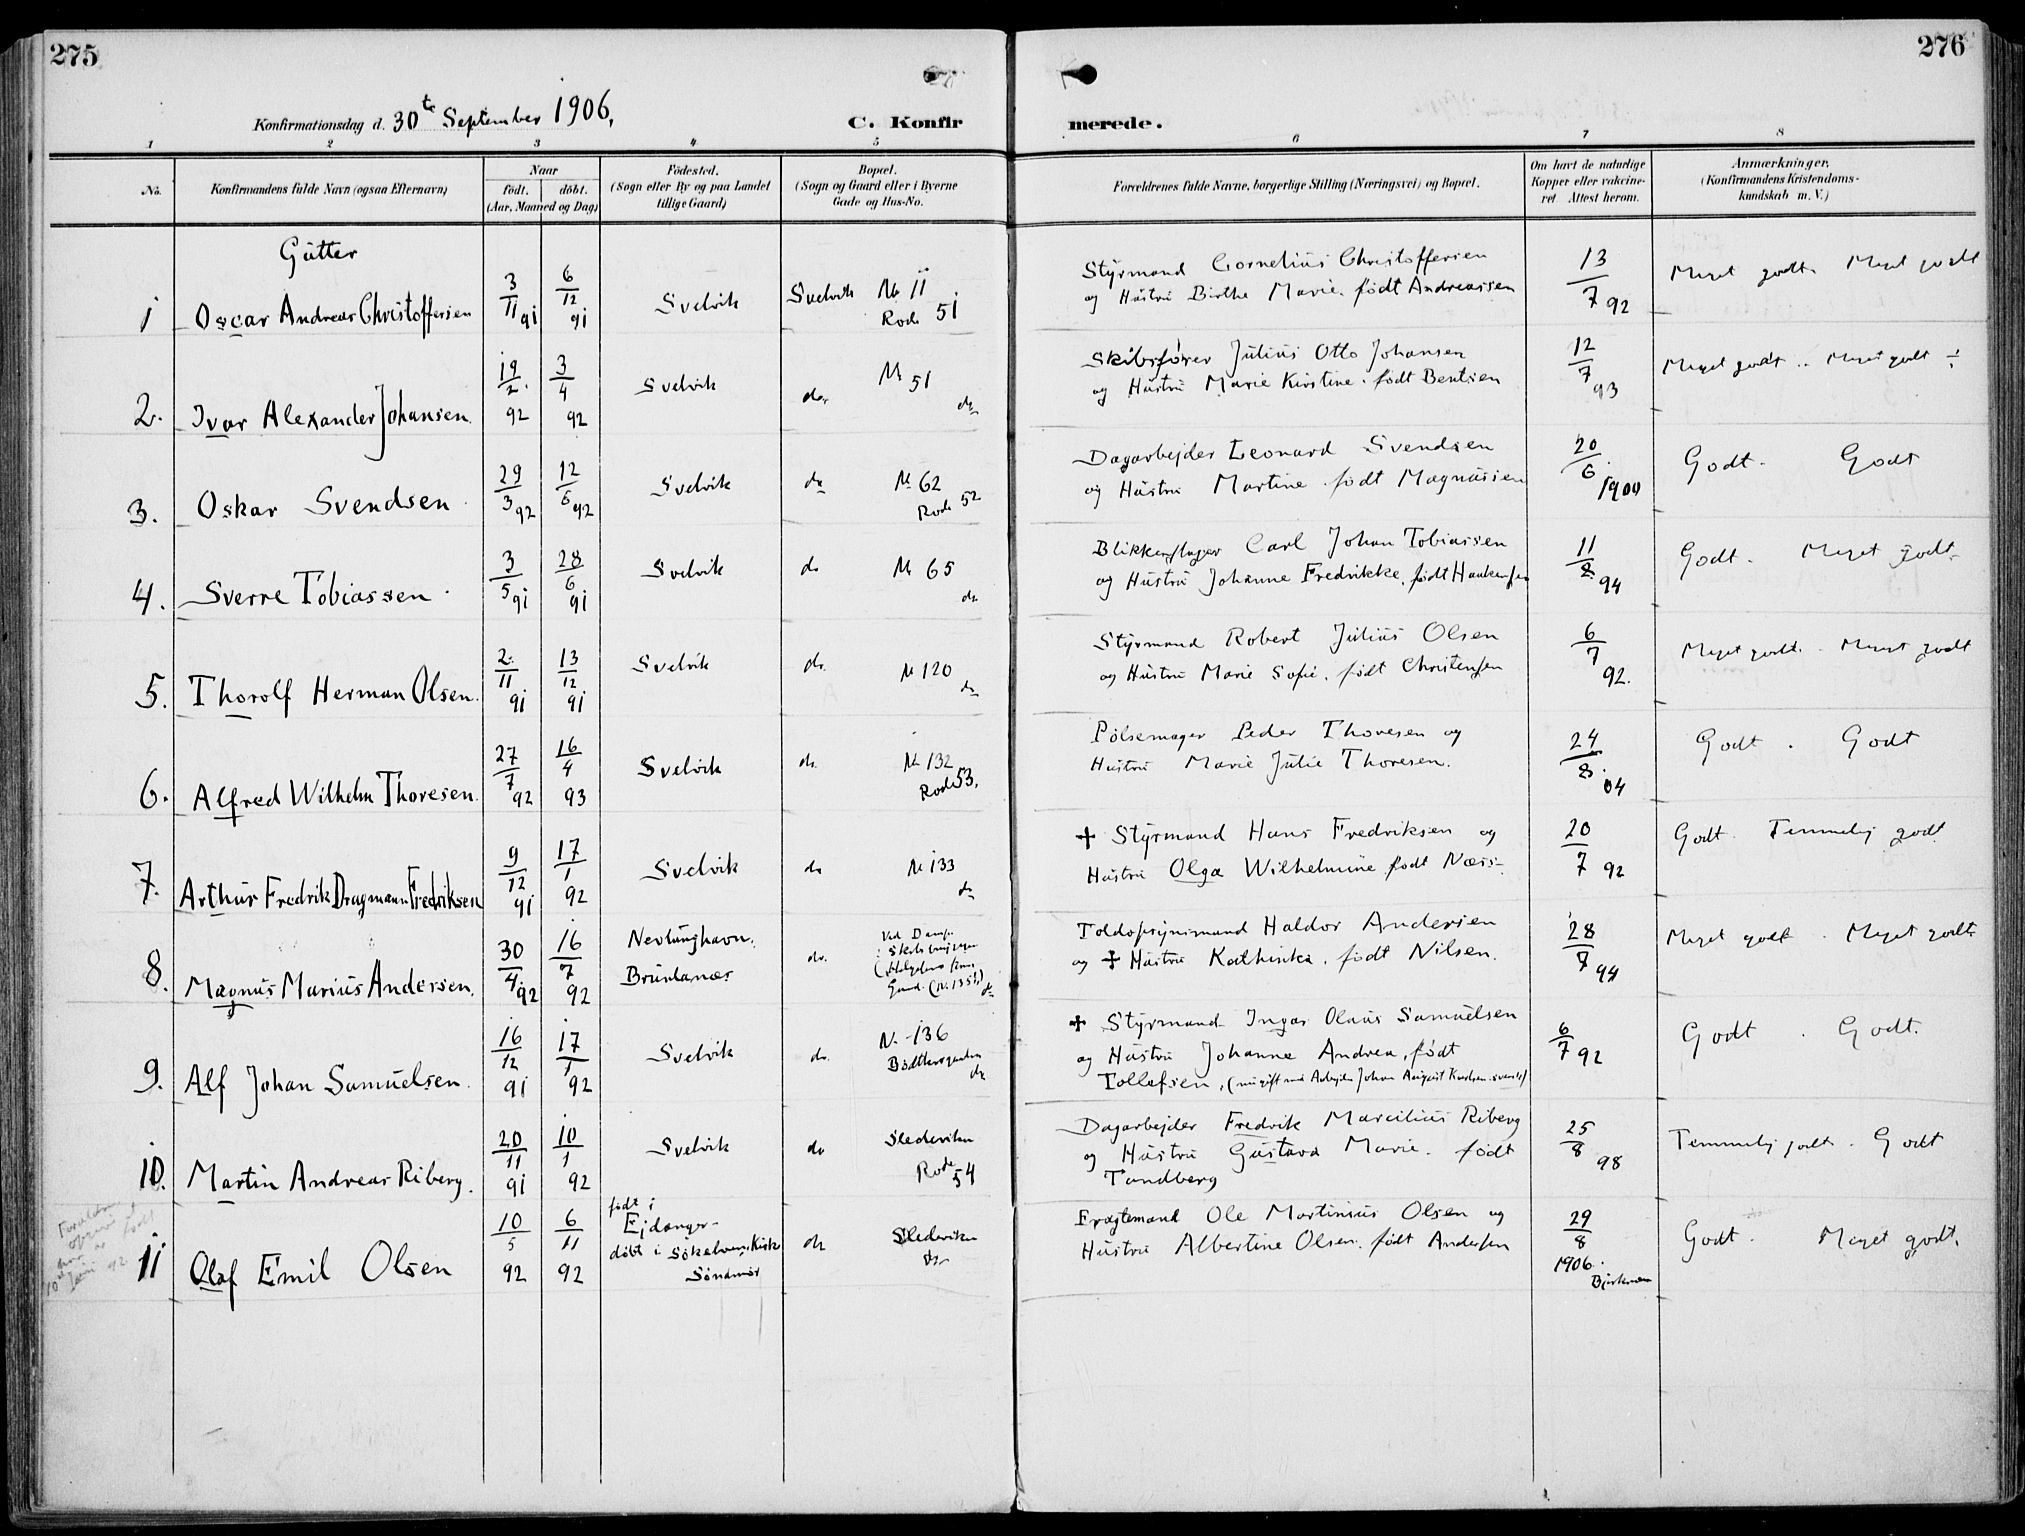 275
276
Konfirmationsdag d. 30te September 1906.
C. Konfir
merede.
1 2 3 4 5 6 7 8
No.
Konfirmandens fulde Navn (ogsaa Efternavn)
Naar
født. døbt.
(Aar, Maaned og Dag)
Fødested.
(Sogn eller By og paa Landet
tillige Gaard)
Bopæl.
(Sogn og Gaard eller i Byerne
Gade og Hus-No.
Forældrenes fulde Navne, borgerlige Stilling (Næringsvei) og Bopæl.
Om havt de naturlige
Kopper eller vakcine-
ret Attest herom.
Anmærkninger.
(Konfirmandens Kristendoms-
kundskab m. V.)
Gutter
1 Oscar Andreas Christoffersen 3/11 91 6/12 91 Svelvik Svelvik No 11
Rode 51
Styrmand Cornelius Christoffersen
og Hustru Birthe Marie. født Andreassen
13/7 92
Meget godt. Meget godt
2. Ivar Alexander Johansen. 19/2. 92 3/4 92 Svelvik do. No 51
do
Skibsfører Julius Otto Johansen
og Hustru Marie Kirstine. født Bentsen
12/7 93
Meget godt .. Meget godt ÷
3. Oskar Svendsen 29/3 92 12/6 92 Svelvik do No 62
Rode 52
Dagarbejder Leonard Svendsen
og Hustru Martine født Magnussen
20/6 1900
Godt. Godt
4. Sverre Tobiassen 3/5 91 28/6 91 Svelvik do No 65
do.
Blikkenslager Carl Johan Tobiassen
og Hustru Johanne Fredrikke, født Haakensen
11/8 94
Godt. Meget godt.
5. Thorolf Herman Olsen. 2/11 91 13/12 91 Svelvik do. No 120
do
Styrmand Robert Julius Olsen
og Hustru Marie Sofie, født Christensen
6/7 92.
Meget godt. Meget godt
6. Alfred Wilhelm Thoresen. 27/7 92 16/4 93 Svelvik do. No 132
Rode 53.
Pølsemager Peder Thoresen og
Hustru Marie Julie Thoresen.
24/8. 04
Godt . Godt
7. Arthur Fredrik Dragmann Fredriksen 9/12 91 17/1 92 Svelvik do No 133
do
✝ Styrmand Hans Fredriksen og
Hustru Olga Wilhelmine født Næss.
20/7 92
Godt. Temmelig godt
8. Magnus Marius Andersen. 30/4 92 16/7 92 Nevlunghavn.
Brunlanæs
do. Ved Damp-
do
Toldopsynsmand Haldor Andersen
og ✝ Hustru Kathinka, født Nilsen.
28/7 94
Meget godt . Meget godt.
9. Alf Johan Samuelsen. 16/12 91 17/1 92 Svelvik do. No 136
do
✝ Styrmand Ingar Olaus Samuelsen
og Hustru Johanne Andrea, født
Tollefsen,
6/7 92
Godt . Godt.
10. Martin Andreas Riberg. 20/11 91 10/1 92 Svelvik do Sledeviken
Rode 54
Dagarbejder Fredrik Marcilius Riberg
og Hustru Gustava Marie. født
Tandberg
25/8 98
Temmelig godt. Godt
11 Olaf Emil Olsen 10/5 92 6/11 92 født i
Ejdanger-
døbt i Søkelven Kirke
Søndmør
do Sledeviken
do
Fragtemand Ole Martinius Olsen og
Hustru Albertine Olsen. født Andersen
29/8 1906.
Godt. Meget godt.